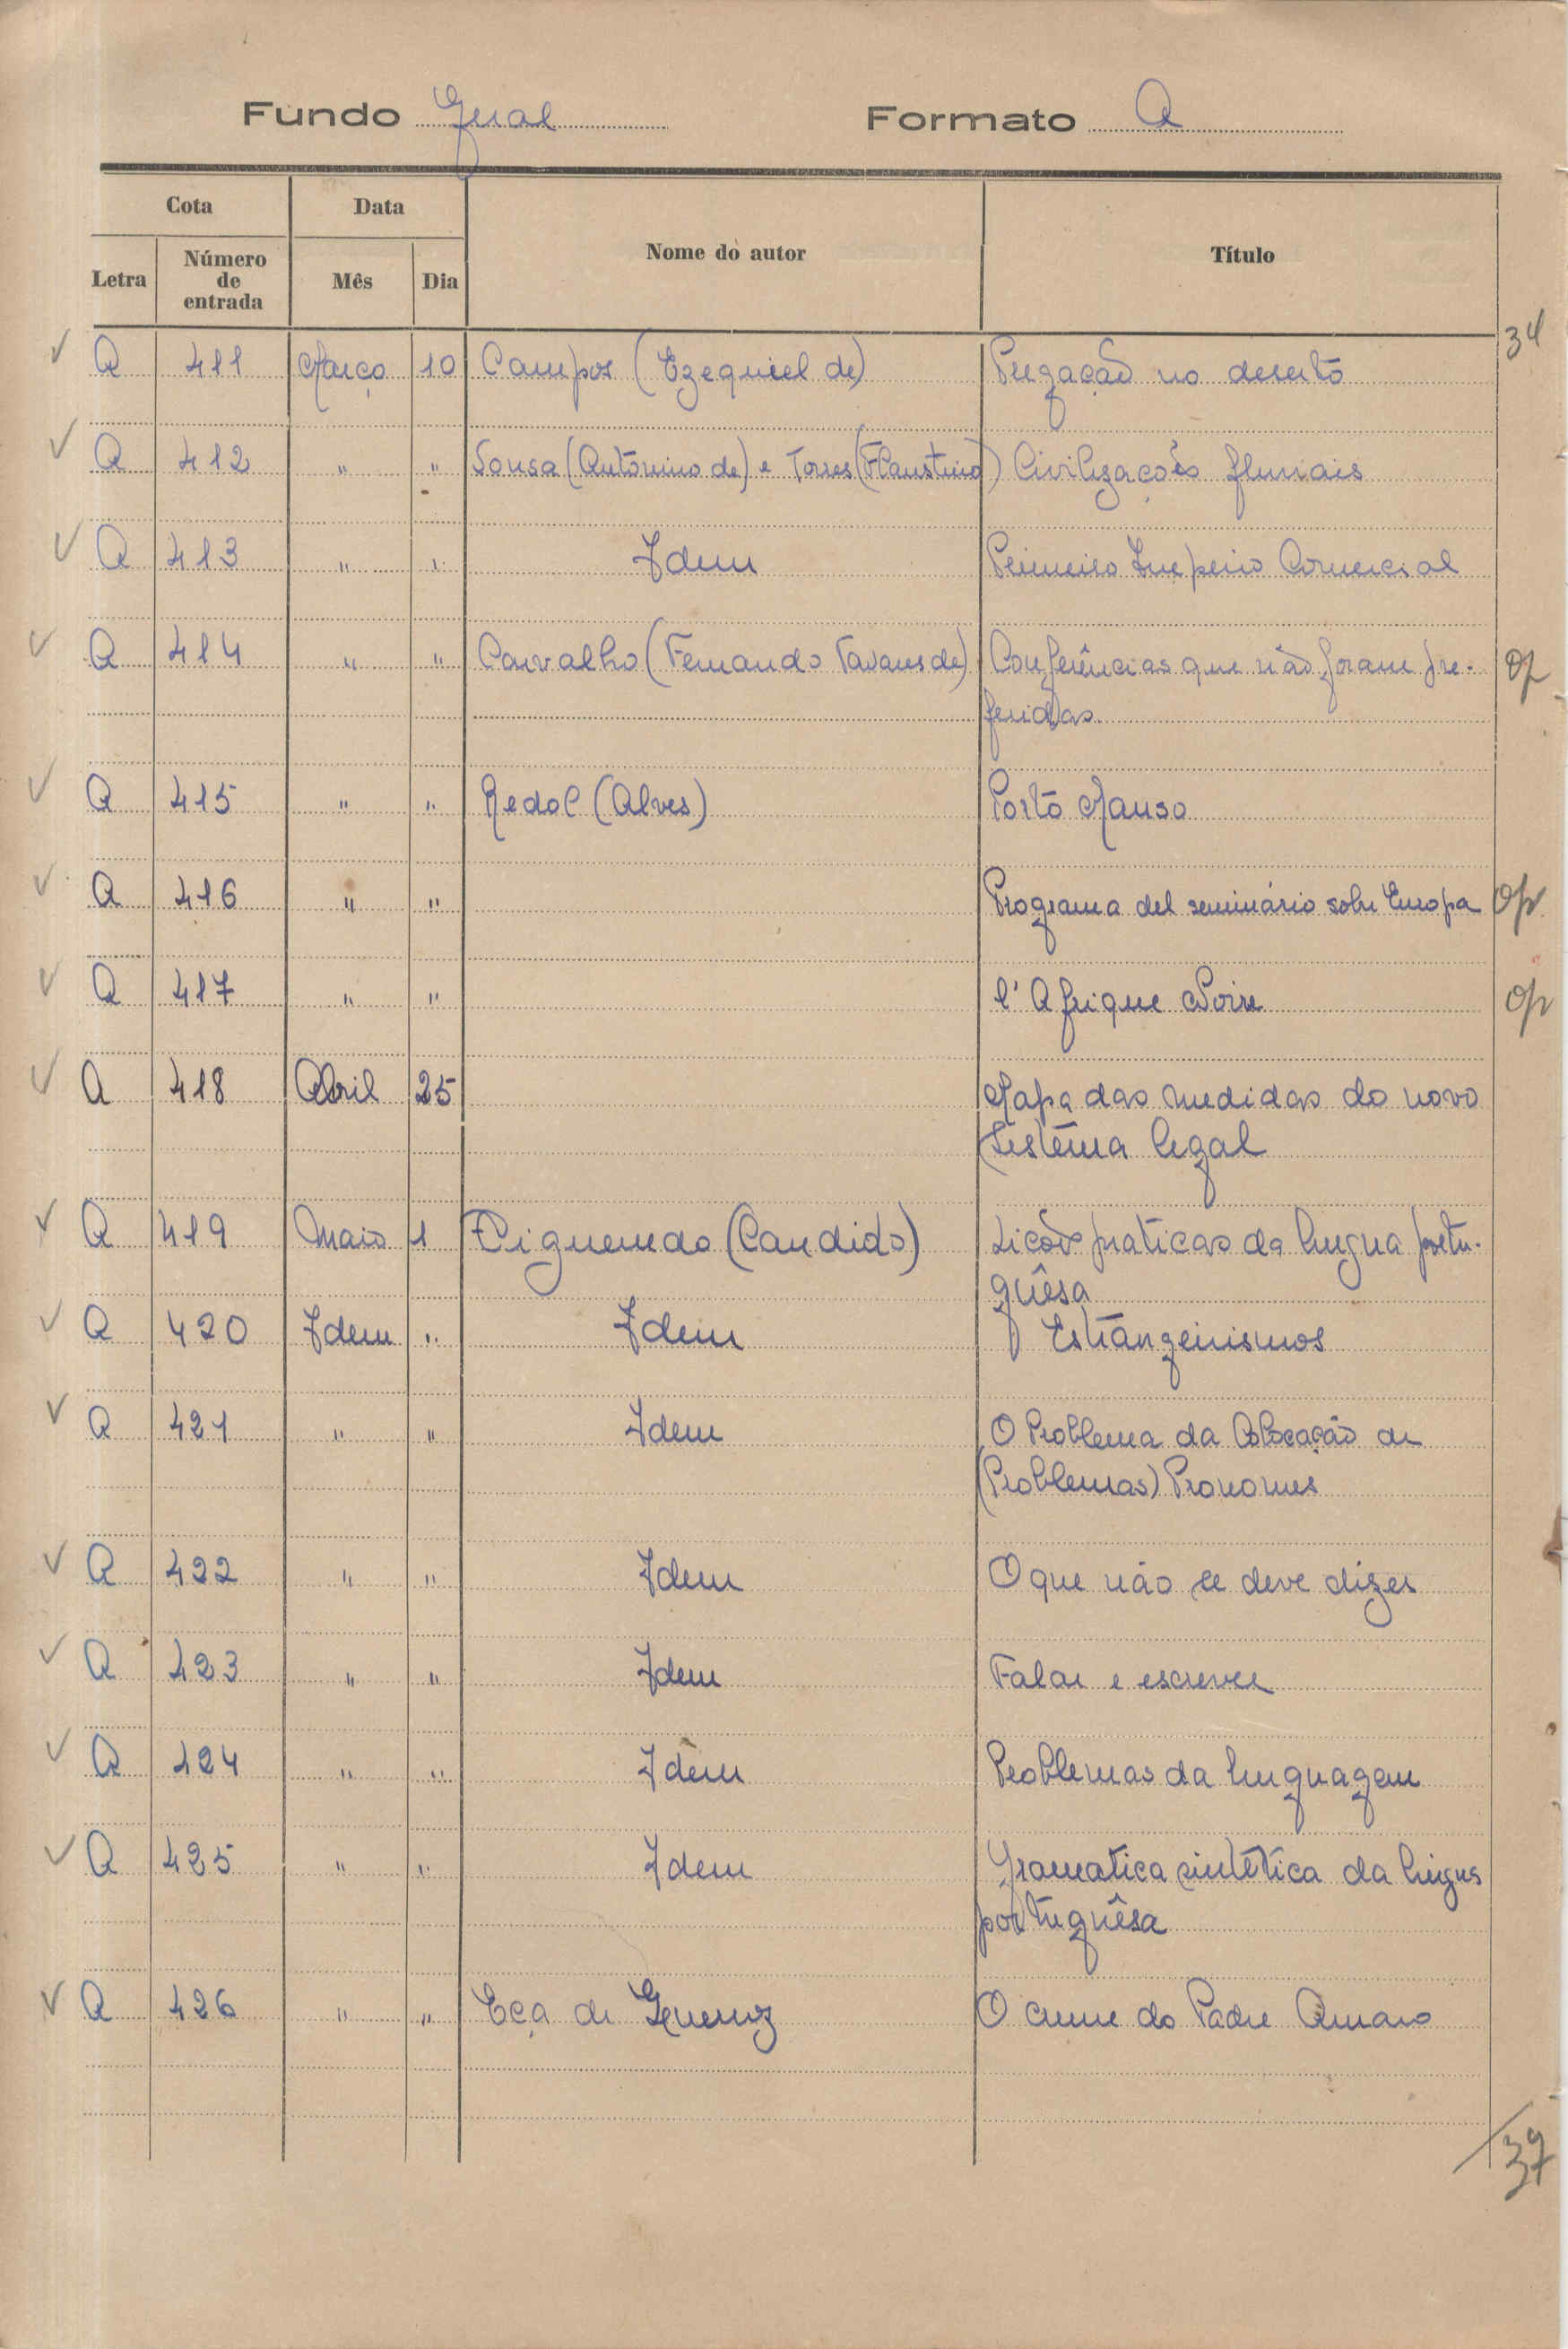 Fundo Geral Formato A
Cota Data Nome do autor Título
Letra Número de entrada Mês Dia
34
A 411 Março 10 Campos (Ezequiel de) Pregação no deserto
A 412 " " Sousa (Antonino de) e Torres (Flaustino) Civilizações fluviais
A 413 " " Idem Primeiro Império Comercial
A 414 " " Carvalho (Fernando Tavares de) Conferências que não foram pre- op
feridas
A 415 " " Redol (Alves) Porto Manso
A 416 " " Programa del seminário sobre Europa op
A 417 " " l'Afrique Noire op
A 418 Abril 25 Mapa das medidas do novo
sistêma legal
A 419 Maio 1 Figueiredo (Candido) Lições praticas da lingua portu-
guêsa
A 420 Idem " Idem Estrangeirismos
A 421 " " Idem O Problema da Colocação de
(Problemas) Pronomes
A 422 " " Idem O que não se deve dizer
A 423 " " Idem Falar e escrever
A 424 " " Idem Problemas da linguagem
A 425 " " Idem Gramatica sintética da lingua
portuguêsa
A 426 " " Eça de Queiroz O crime do Padre Amaro
37